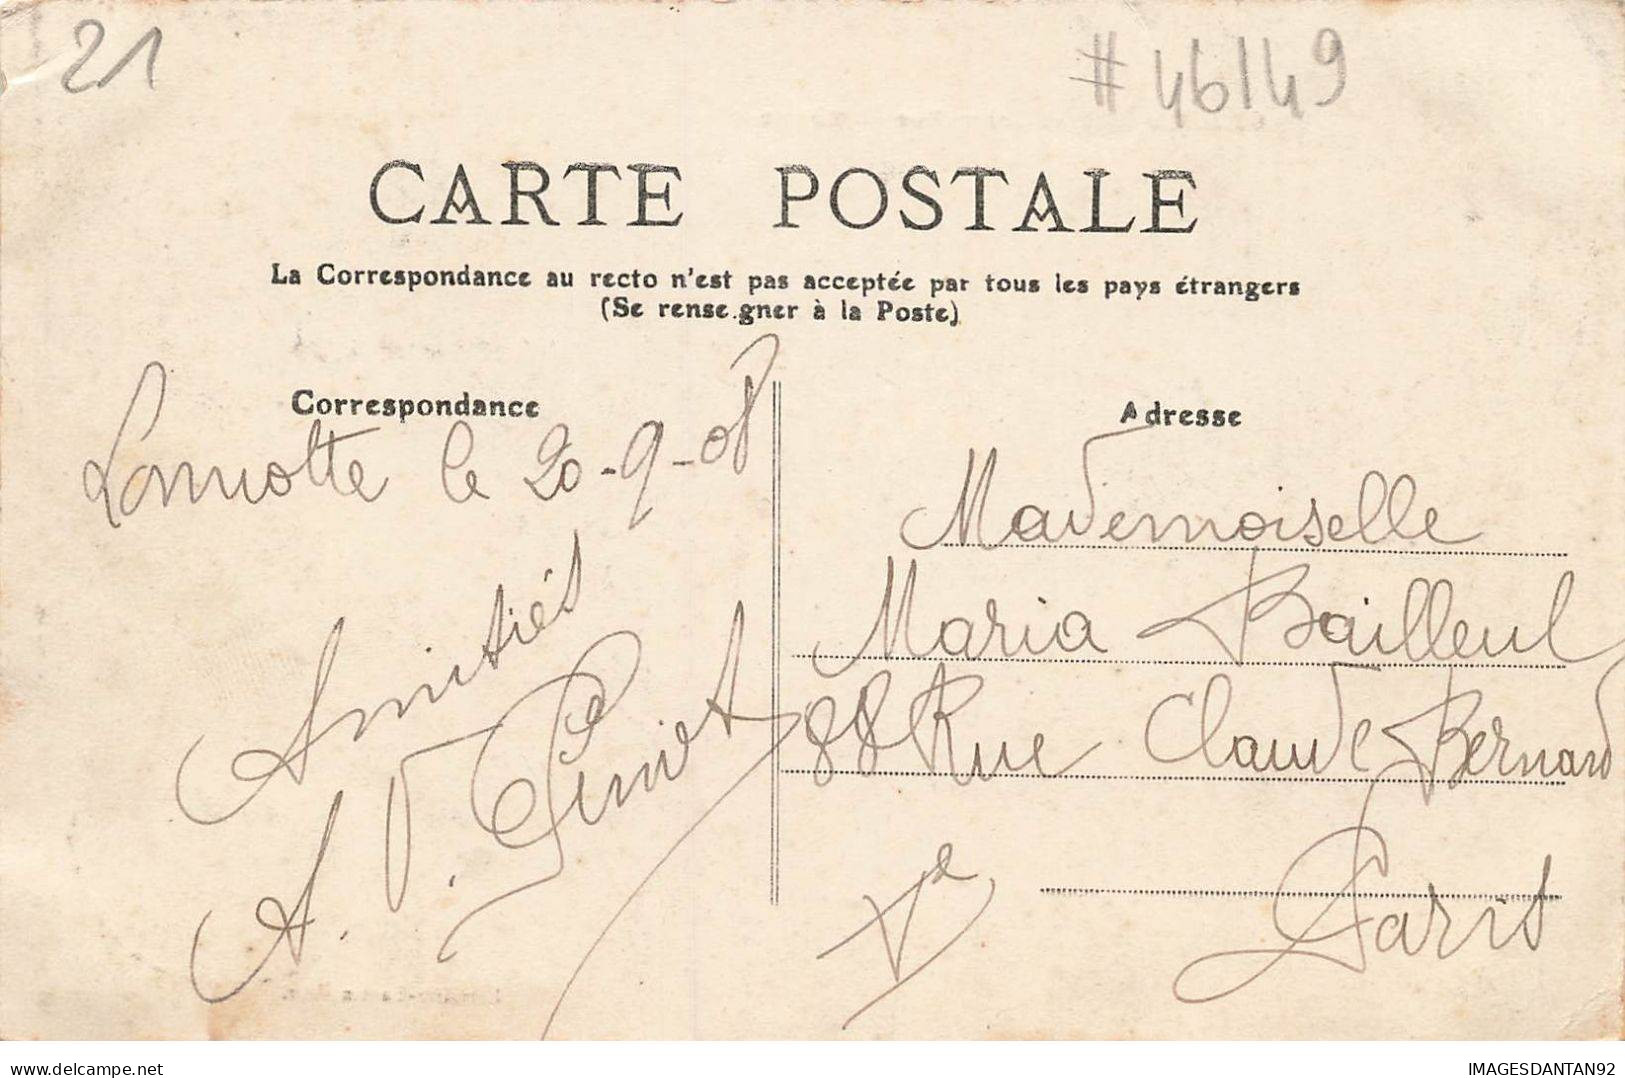 21
#46149
CARTE POSTALE
La Correspondance au recto n'est pas acceptée par tous les pays étrangers
(Se rense.gner à la Poste)
Correspondance
Adresse
Lamotte le 20-9-08
Amitiés
A. P.
Mademoiselle
Maria Bailleul
88 Rue Claude Bernard
Paris
Ve
delcampe.net
IMAGESDANTAN92